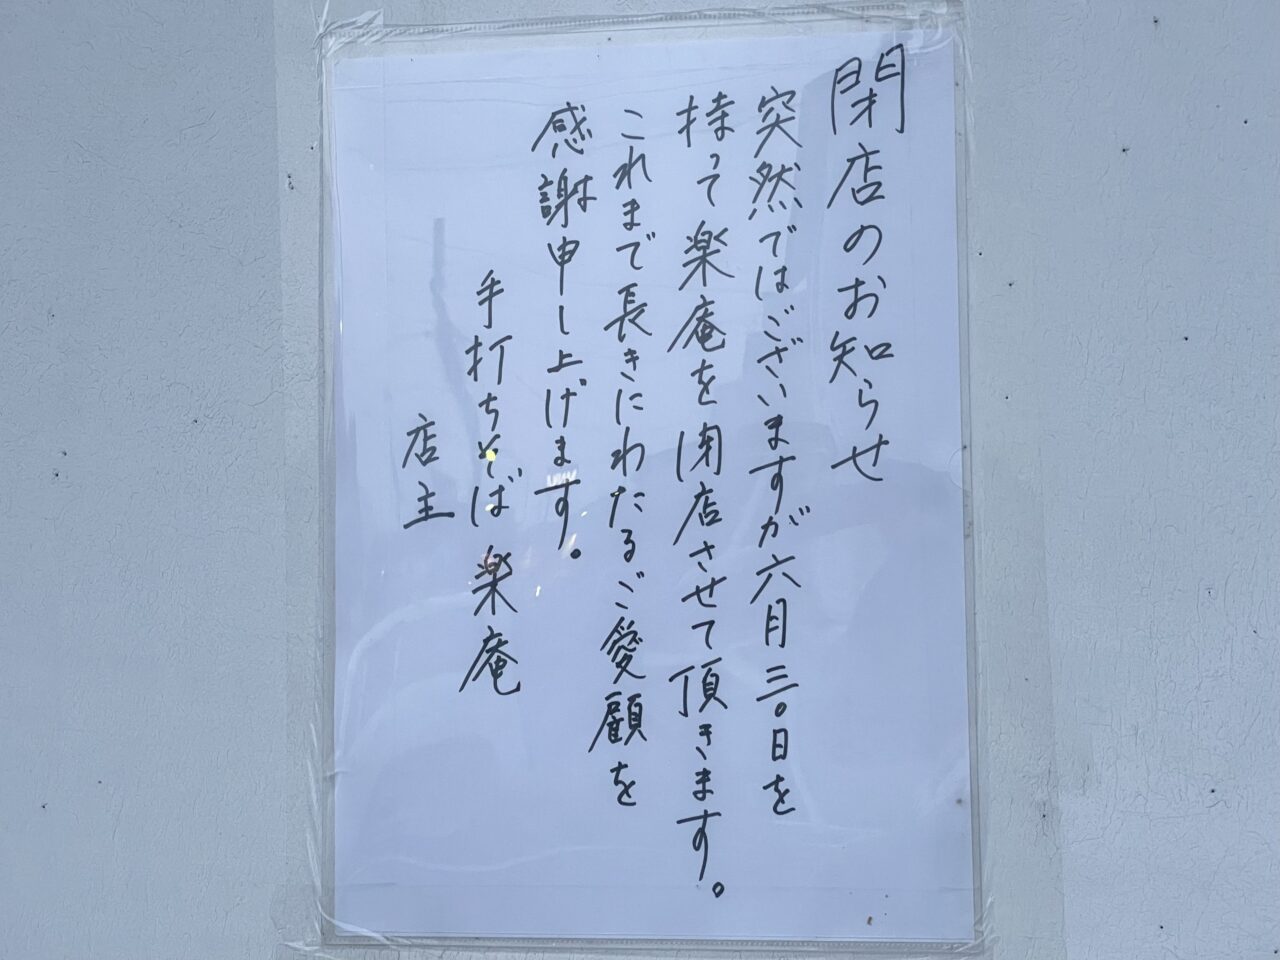 閉店のお知らせ
突然ではございますが六月三〇日を
持って楽庵を閉店させて頂きます。
これまで長きにわたるご愛顧を
感謝申し上げます。
手打ちそば 楽庵
店主